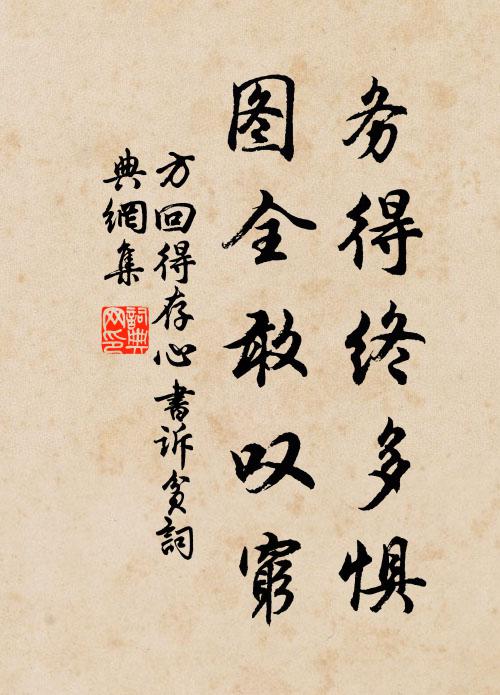 务得终多惧
图全敢叹穷
方回得存心书诉贫词
典網集
詞典网印